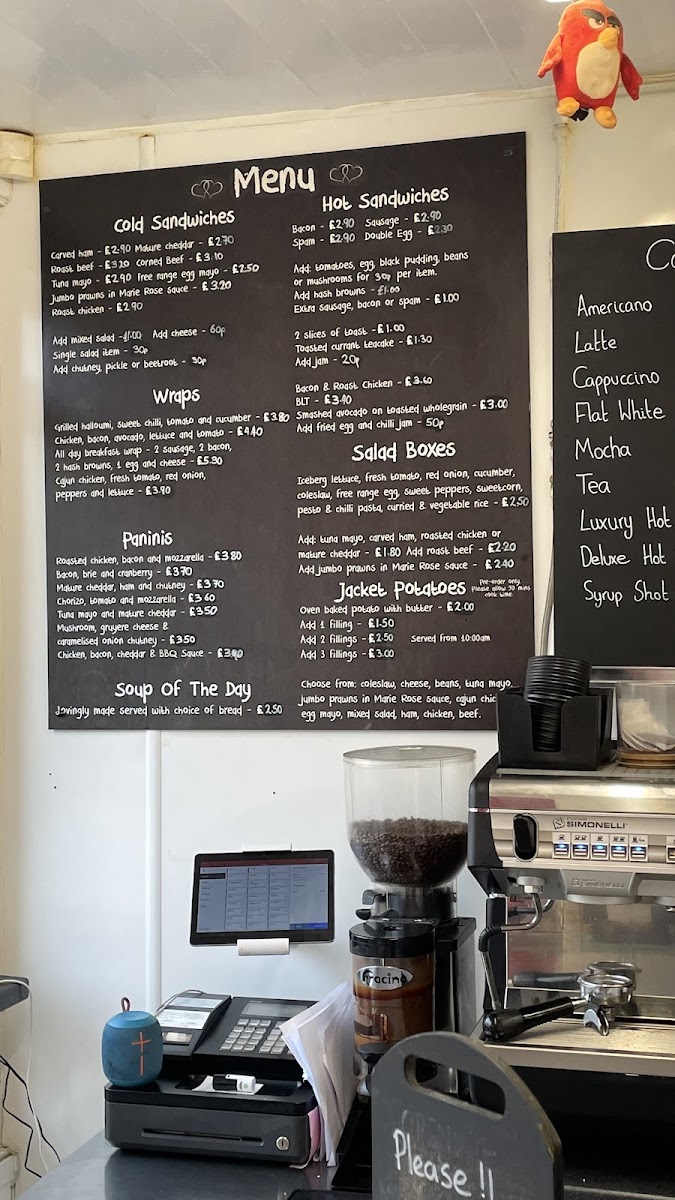 Menu
Cold Sandwiches
Carved ham - £2.90 Mature cheddar - £2.70
Roast beef - £3.20 Corned Beef - £3.10
Tuna mayo - £2.90 Free range egg mayo - £2.50
Jumbo prawns in Marie Rose sauce - £3.20
Roast chicken - £2.90
Add mixed salad - £1.00 Add cheese - 60p
Single salad item - 30p
Add chutney, pickle or beetroot - 30p
Wraps
Grilled halloumi, sweet chilli, tomato and cucumber - £3.80
Chicken, bacon, avocado, lettuce and tomato - £4.40
All day breakfast wrap - 2 sausage, 2 bacon,
2 hash browns, 1 egg and cheese - £5.90
Cajun chicken, fresh tomato, red onion,
peppers and lettuce - £3.90
Paninis
Roasted chicken, bacon and mozzarella - £3.80
Bacon, brie and cranberry - £3.70
Mature cheddar, ham and chutney - £3.70
Chorizo, tomato and mozzarella - £3.60
Tuna mayo and mature cheddar - £3.50
Mushroom, gruyere cheese &
caramelised onion chutney - £3.50
Chicken, bacon, cheddar & BBQ Sauce - £3.90
Soup Of The Day
Lovingly made served with choice of bread - £2.50
Hot Sandwiches
Bacon - £2.90 Sausage - £2.90
Spam - £2.90 Double Egg - £2.30
Add: tomatoes, egg, black pudding, beans
or mushrooms for 30p per item.
Add hash browns - £1.00
Extra sausage, bacon or spam - £1.00
2 slices of toast - £1.00
Toasted currant teacake - £1.30
Add jam - 20p
Bacon & Roast Chicken - £3.60
BLT - £3.40
Smashed avocado on toasted wholegrain - £3.00
Add fried egg and chilli jam - 50p
Salad Boxes
Iceberg lettuce, fresh tomato, red onion, cucumber,
coleslaw, free range egg, sweet peppers, sweetcorn,
pesto & chilli pasta, curried & vegetable rice - £2.50
Add: tuna mayo, carved ham, roasted chicken or
mature cheddar - £1.80 Add roast beef - £2.20
Add jumbo prawns in Marie Rose sauce - £2.40
Jacket Potatoes
Pre-order only.
Please allow 30 mins
cook time
Oven baked potato with butter - £2.00
Add 1 filling - £1.50
Add 2 fillings - £2.50 Served from 10:00am
Add 3 fillings - £3.00
Choose from: coleslaw, cheese, beans, tuna mayo,
jumbo prawns in Marie Rose sauce, cajun
egg mayo, mixed salad, ham, chicken, beef.
Americano
Latte
Cappuccino
Flat White
Mocha
Tea
Luxury Hot
Deluxe Hot
Syrup Shot
SIMONELLI
Fracino
Please !!